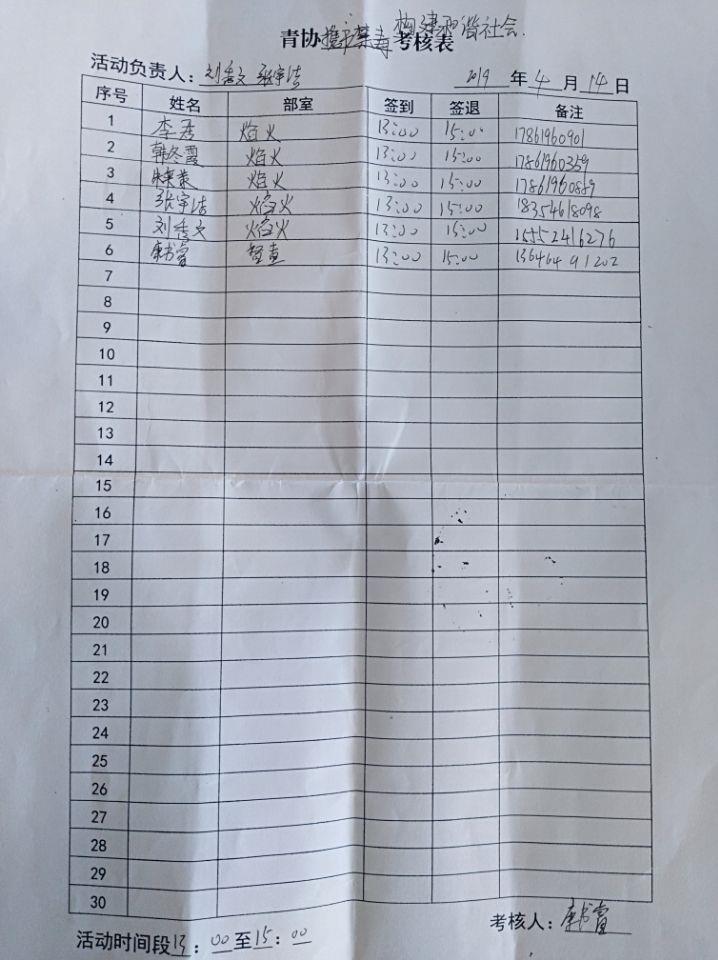 构建和谐社会
青协携手禁毒考核表
活动负责人：刘秀文 张宇洁 2019年4月14日
序号 姓名 部室 签到 签退 备注
1 李秀 焰火 13:00 15:00 17861960901
2 韩冬霞 焰火 13:00 15:00 17861960359
3 焰火 13:00 15:00 17861960889
4 张宇洁 焰火 13:00 15:00 18354618098
5 刘秀文 焰火 13:00 15:00 15552416276
6 13:00 15:00 13646491202
7
8
9
10
11
12
13
14
15
16
17
18
19
20
21
22
23
24
25
26
27
28
29
30
考核人：
活动时间段13：00至15：00